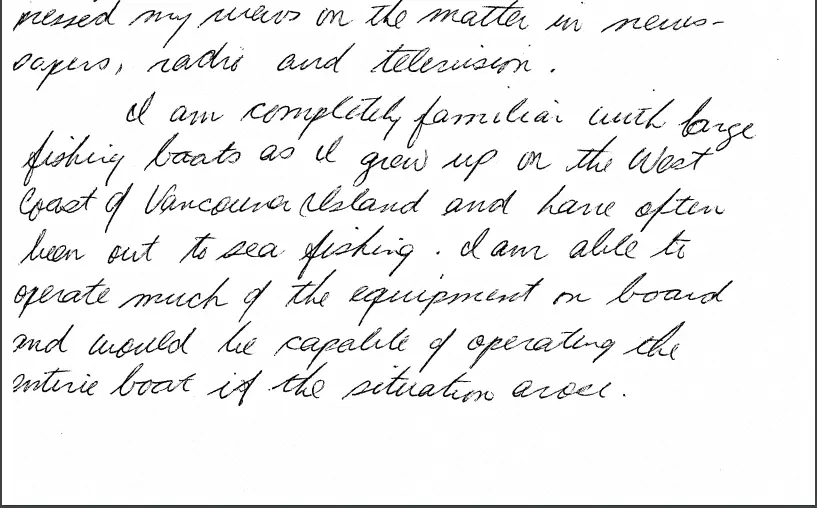 pressed my views on the matter in news-
papers, radio and television.
I am completely familiar with large
fishing boats as I grew up on the West
Coast of Vancouver Island and have often
been out to sea fishing. I am able to
operate much of the equipment on board
and would be capable of operating the
entire boat if the situation arose.